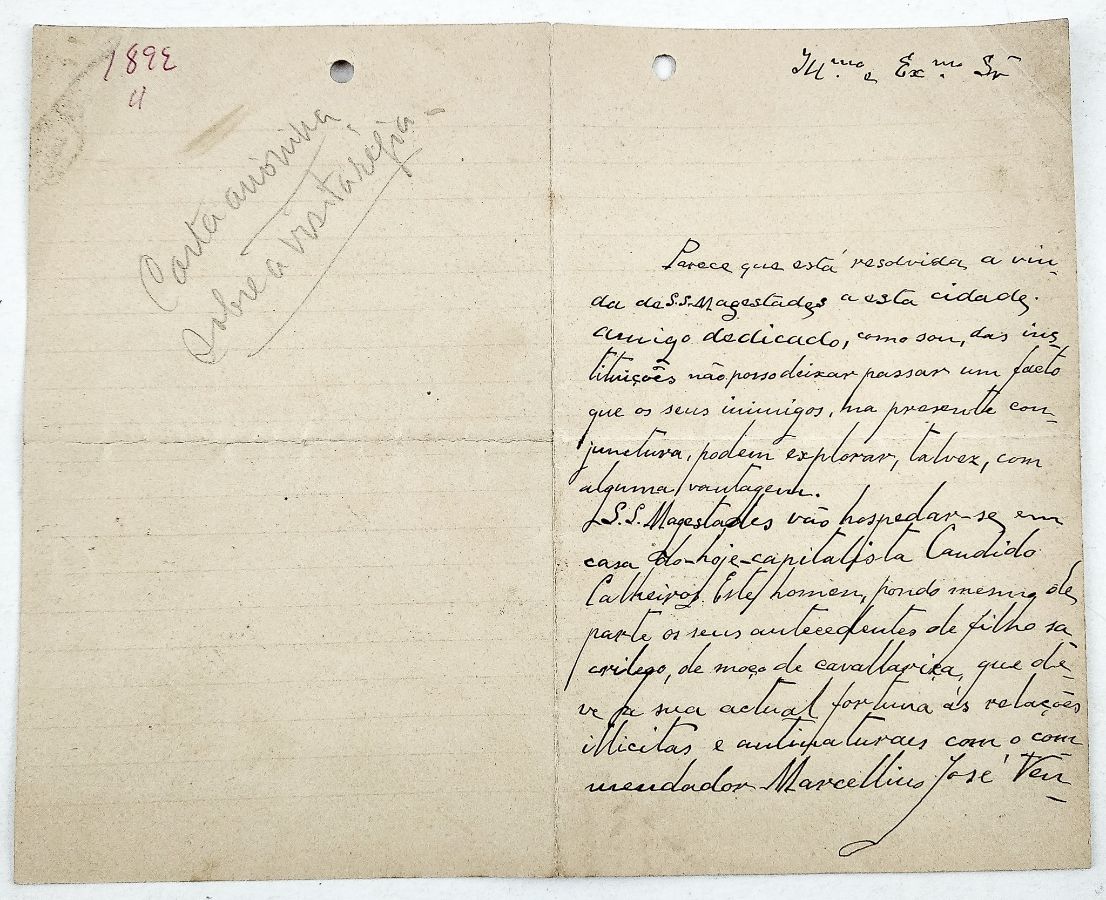 1892
4
Carta anónima
sobre a visita régia -
Ill.mo e Ex.mo Sr
Parece que está resolvida a vin-
da de S.S. Magestades a esta cidade.
amigo dedicado, como sou, das ins-
tituições não posso deixar passar um facto
que os seus inimigos, na presente con-
junctura, podem explorar, talvez, com
alguma vantagem.
S.S. Magestades vão hospedar-se em
casa do-hoje-capitalista Candido
Calheiros. Este homem, pondo mesmo de
parte os seus antecedentes de filho sa-
crilego, de moço de cavallariça, que de-
ve a sua actual fortuna ás relações
illicitas e antinaturaes com o com-
mendador Marcellino José Ven-